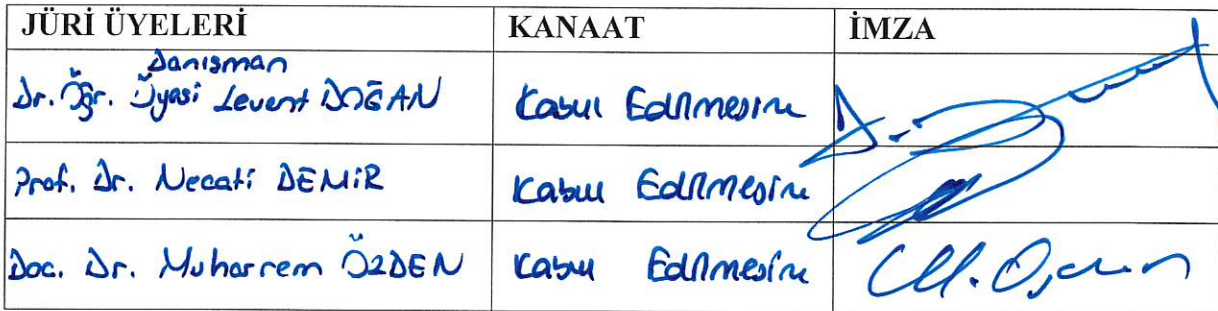 JÜRİ ÜYELERİ KANAAT İMZA
Danışman
Dr. Öğr. Üyesi Levent DOĞAN Kabul Edilmesine
Prof. Dr. Necati DEMİR Kabul Edilmesine
Doc. Dr. Muharrem ÖZDEN Kabul Edilmesine M. Özden